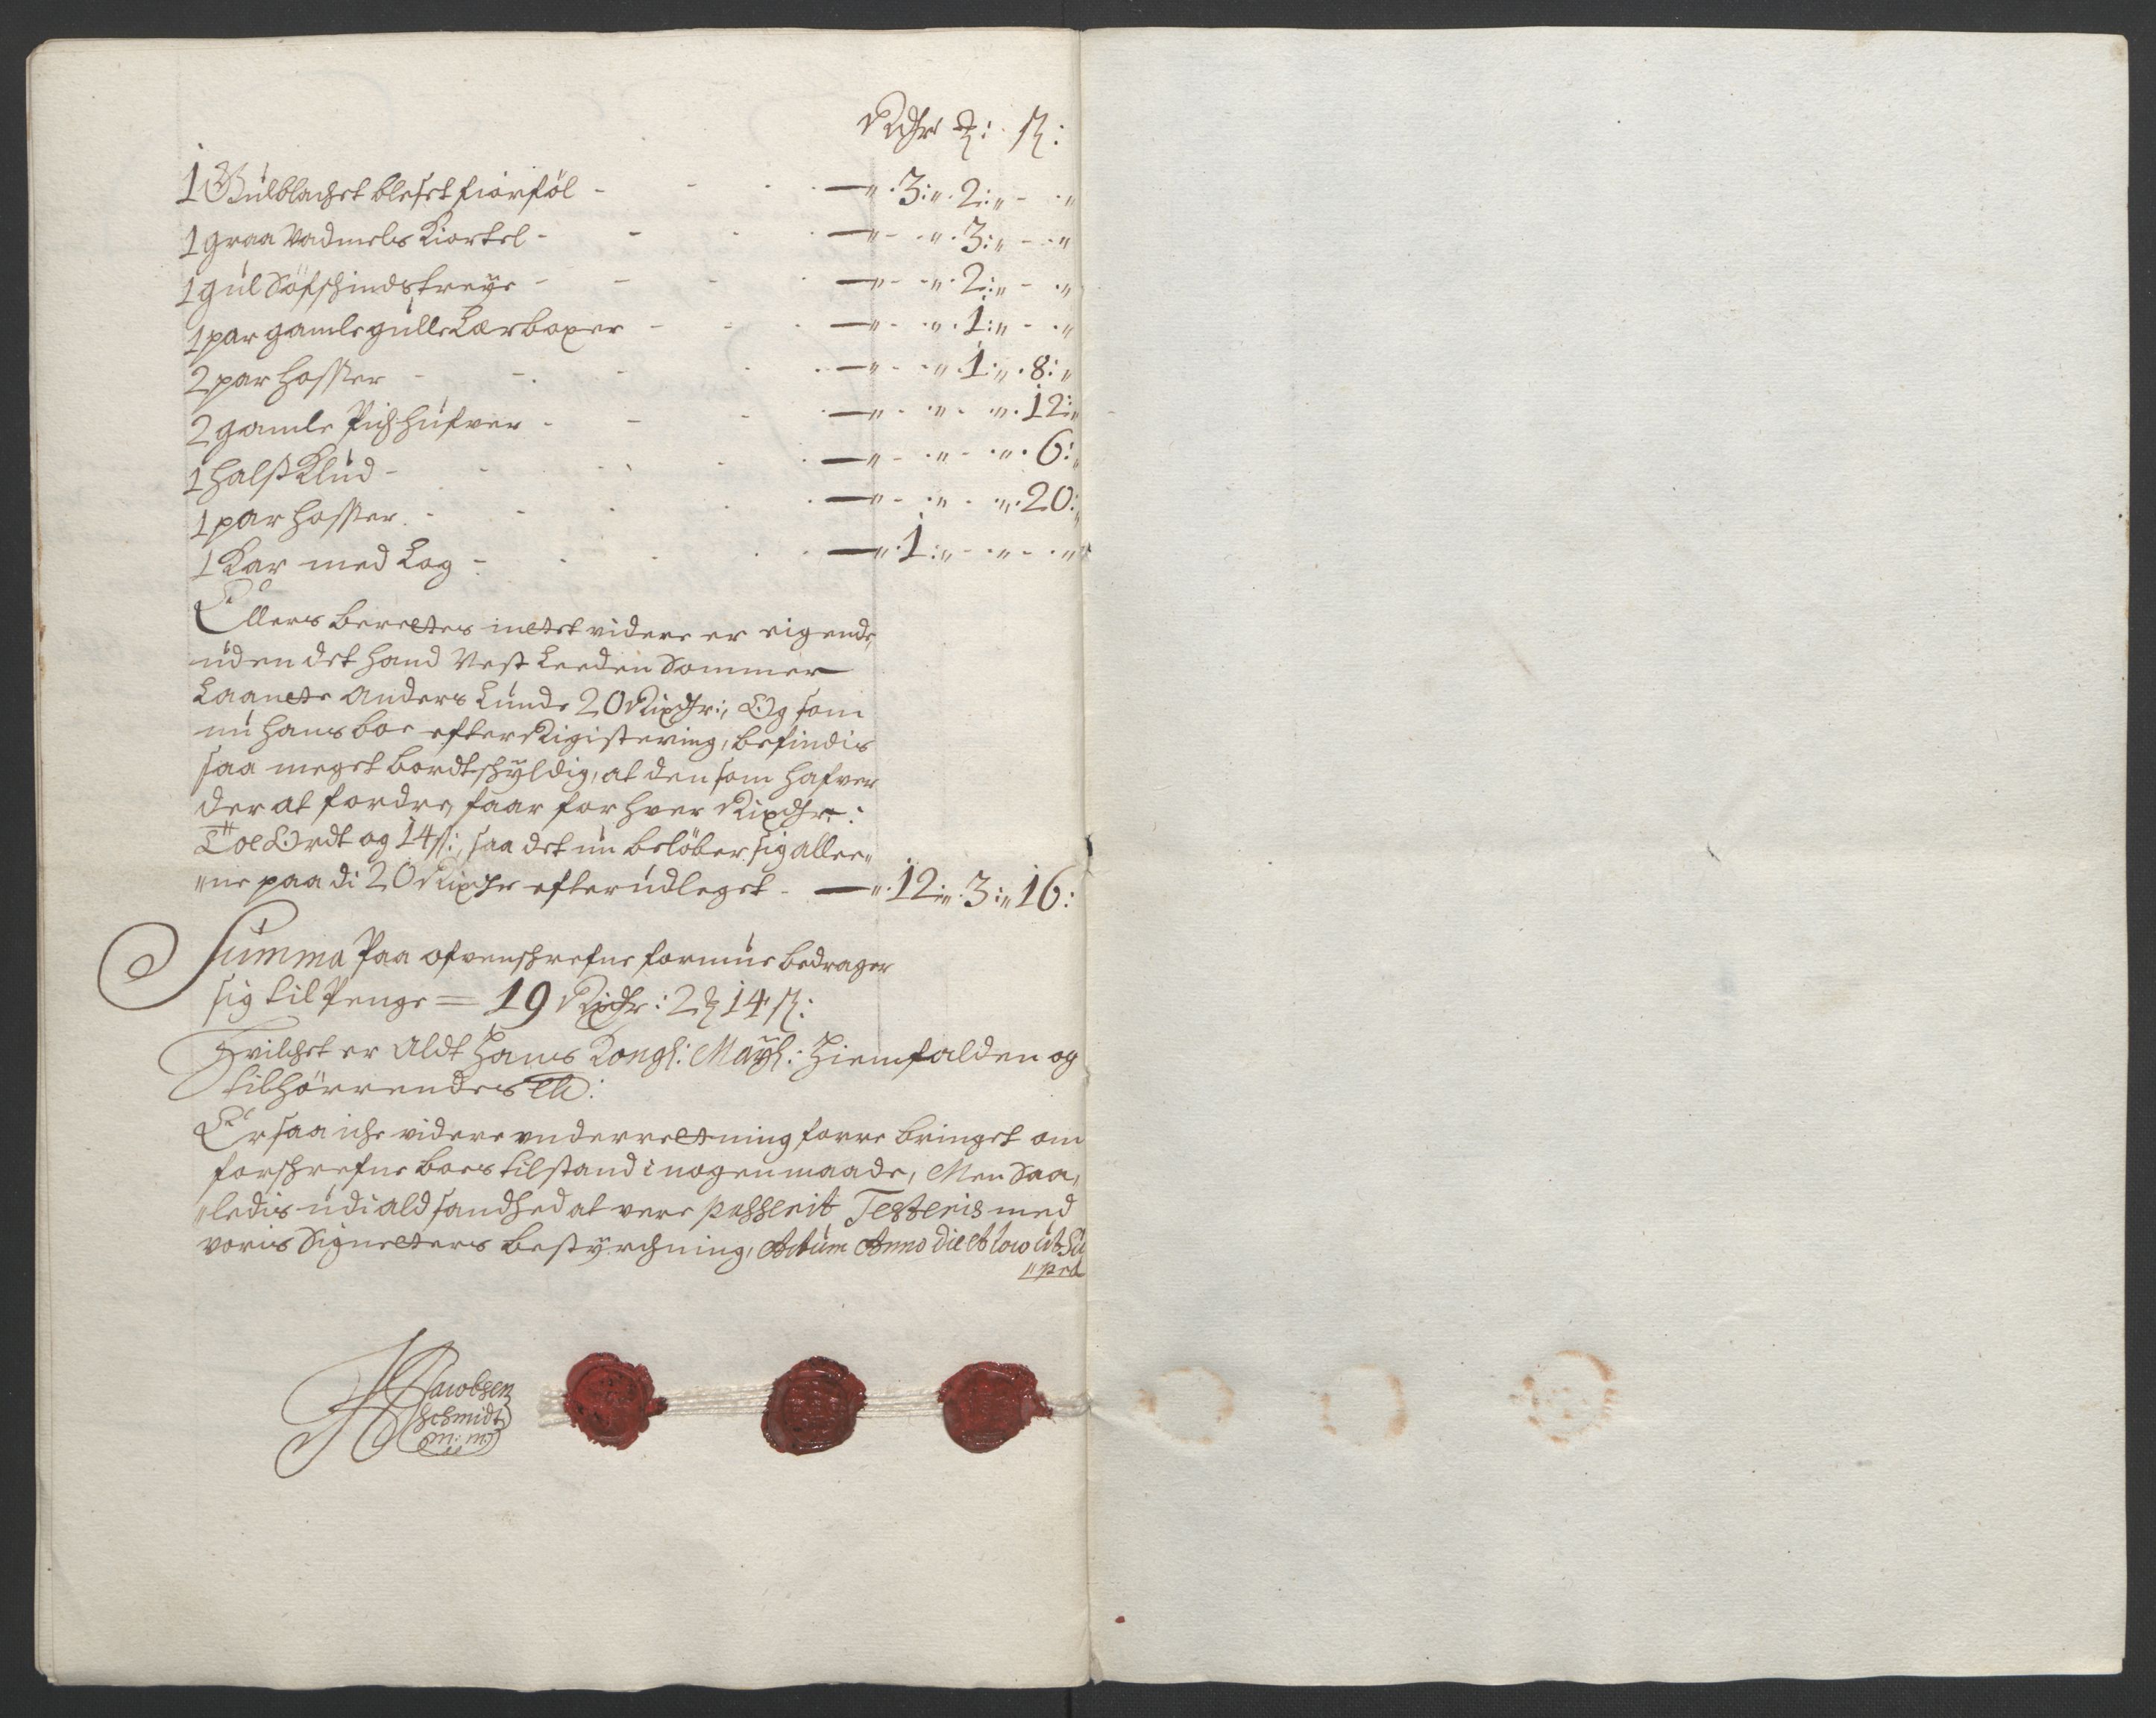 Rdr ꝣ: ß:
1 Gulblachet bleset fiorföl - - - - — „ 3:„ 2:„ - „
1 graa Vadmels Kiortel - - - - — „ - „ 3:„ - „
1 gul Söfschindstreye - - - - — „ - „ 2:„ - „
1 par gamle gulle Lærboxer - - - — „ - „ 1:„ - „
2 par hosser - - - - — „ - „ 1:„ 8:„
2 gamle Pichhufver - - - — „ - „ - „ 12:„
1 halsKlud - - - - — „ - „ - „ 6:„
1 par hosser - - - - — „ - „ - „ 20:„
1 Kar med Log - - - - — „ 1:„ - „ - „
Ellers berettes intet videre er eigende,
uden det hand Vest Leeden Sommer
Laante Anders Lunde 20 Rixdr:, Og som
nu hans boe efter Rigistering, befindis
saa meget bordtschyldig, at den som hafver
der at fordre, faar for hver Rixdr:
Toe Ordt og 14 ß:, saa det nu belöber sig allee„
„ne paa di 20 Rixdr efter udleget - — „ 12:„ 3:„ 16:
Summa Paa ofvenschrefne formue bedrager
sig til Penge = 19 Rixdr: 2 ꝣ 14 ß:
Hvilchet er Aldt Hans Kongl: Mayl: Hiemfalden og
tilhörrendes
Er saa iche videre underretning forre bringet om
forschrefne boes tilstand i nogen maade, Men Saa„
„ledis udi ald sandhed at vere passerit Testeris med
voris Signetters bestyrchning, Actum Anno die et loco ut Su
„pra
Jacobsen
Schmidt
m: m: